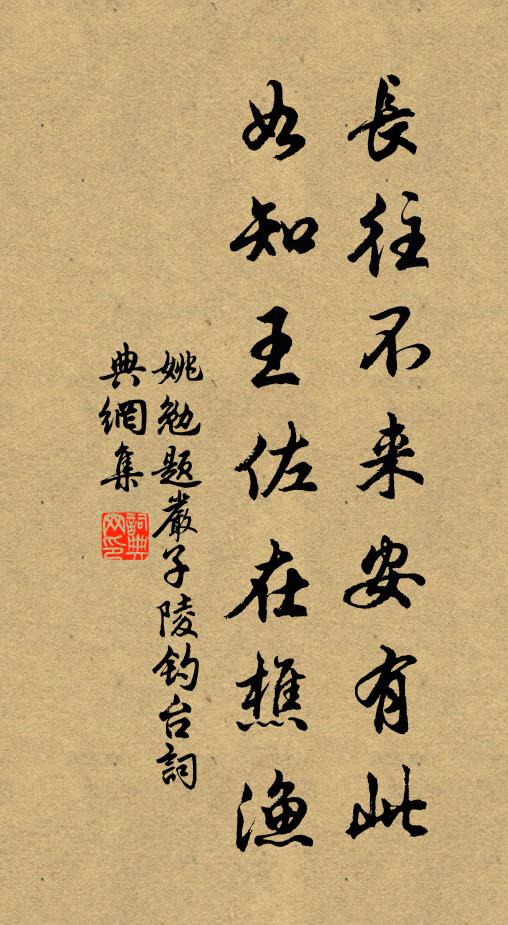 長往不来安有此
如知王佐在樵漁
姚勉題嚴子陵钓台詞
典網集
詞典网印